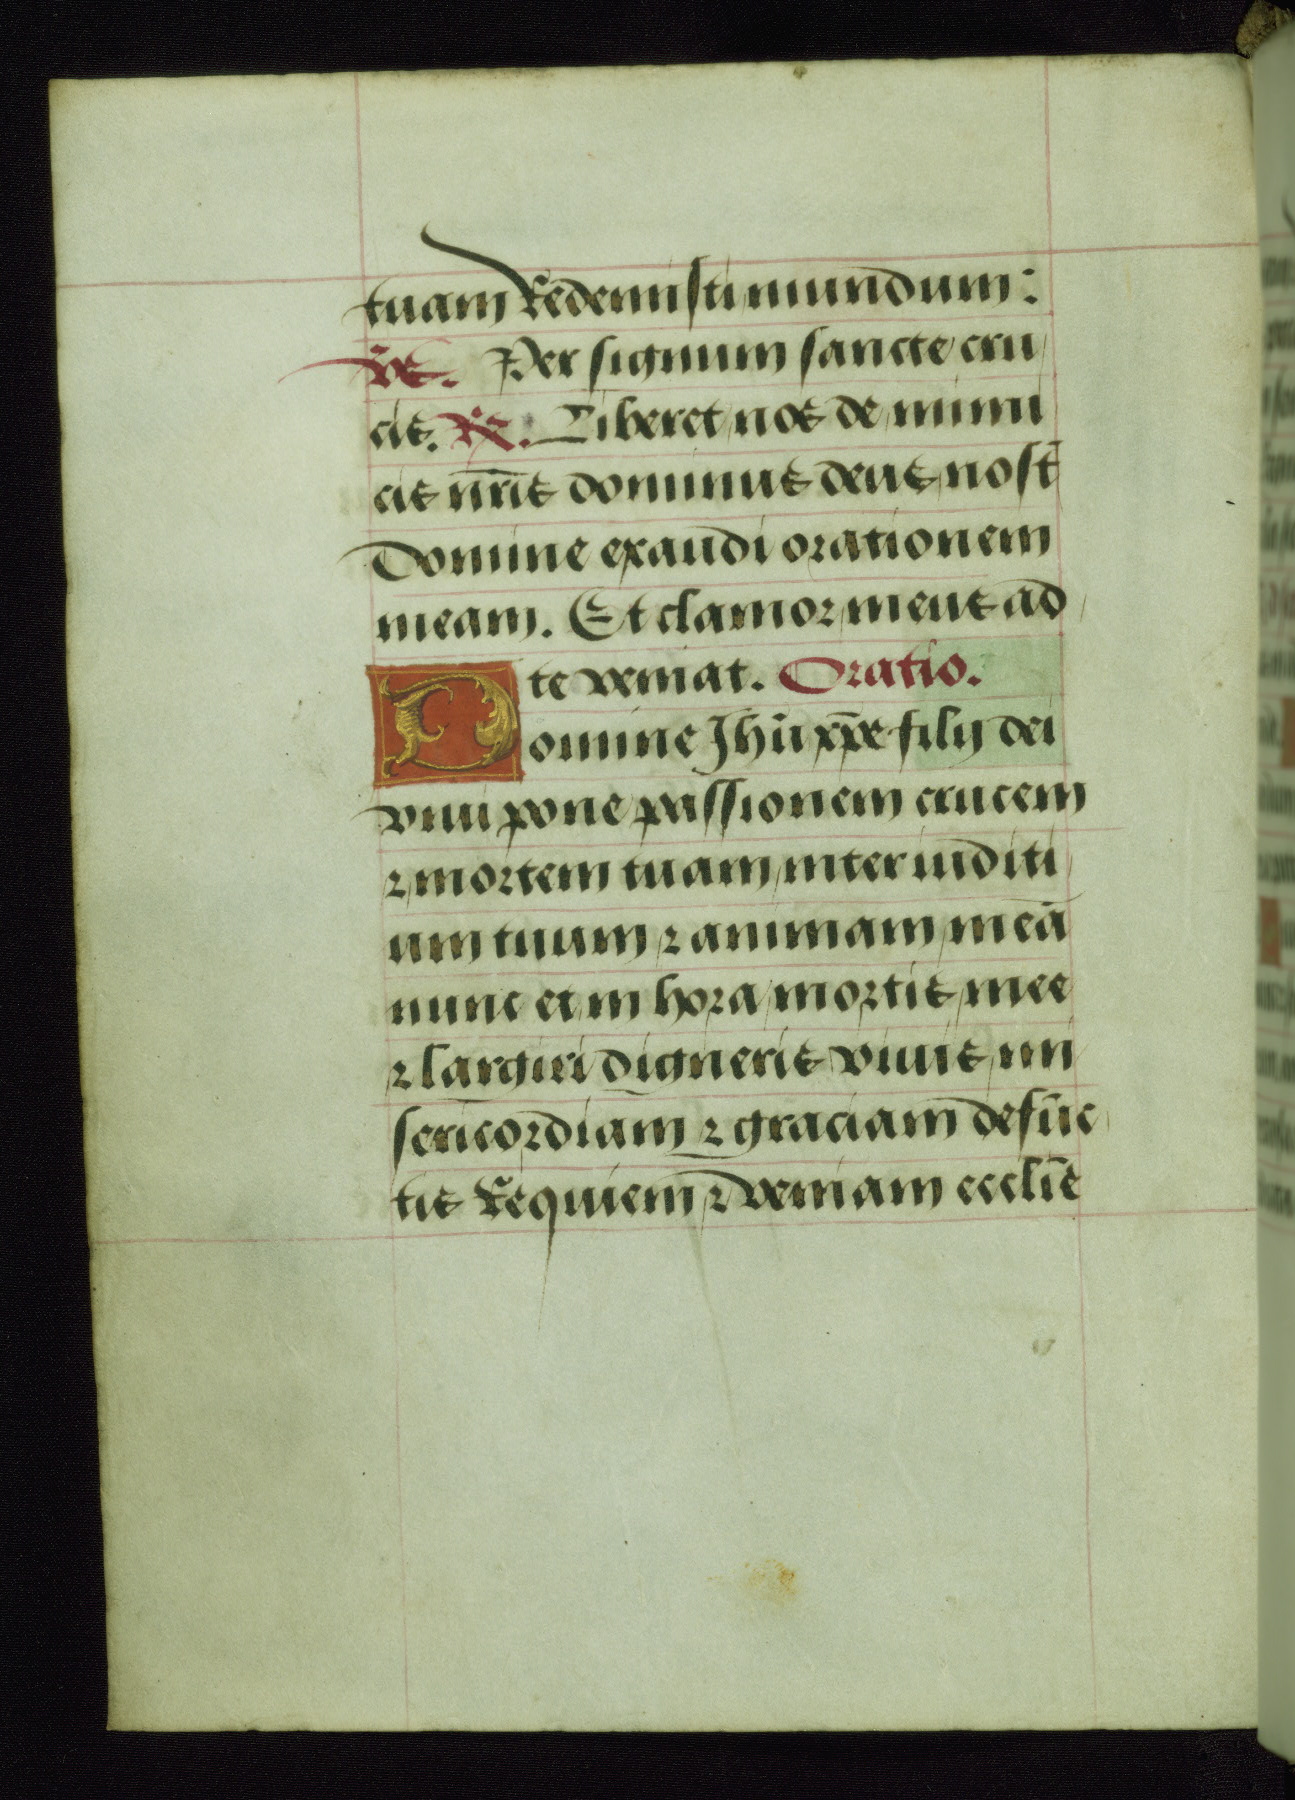 tuam Redemisti mundum:
ꝟ. Per signum sancte cru
cis. ℟. Liberet nos de inimi
cis nr̄is dominus deus nost̄
Domine exaudi orationem
meam. Et clamor meus ad
te veniat. Oratio.
Domine Jhū xp̄e filij dei
viui pone passionem crucem
⁊ mortem tuam inter iuditi
um tuum ⁊ animam meā
nunc et in hora mortis mee
⁊ largiri digneris viuis mi
sericordiam ⁊ graciam defūc
tis Requiem ⁊ veniam ecclīe